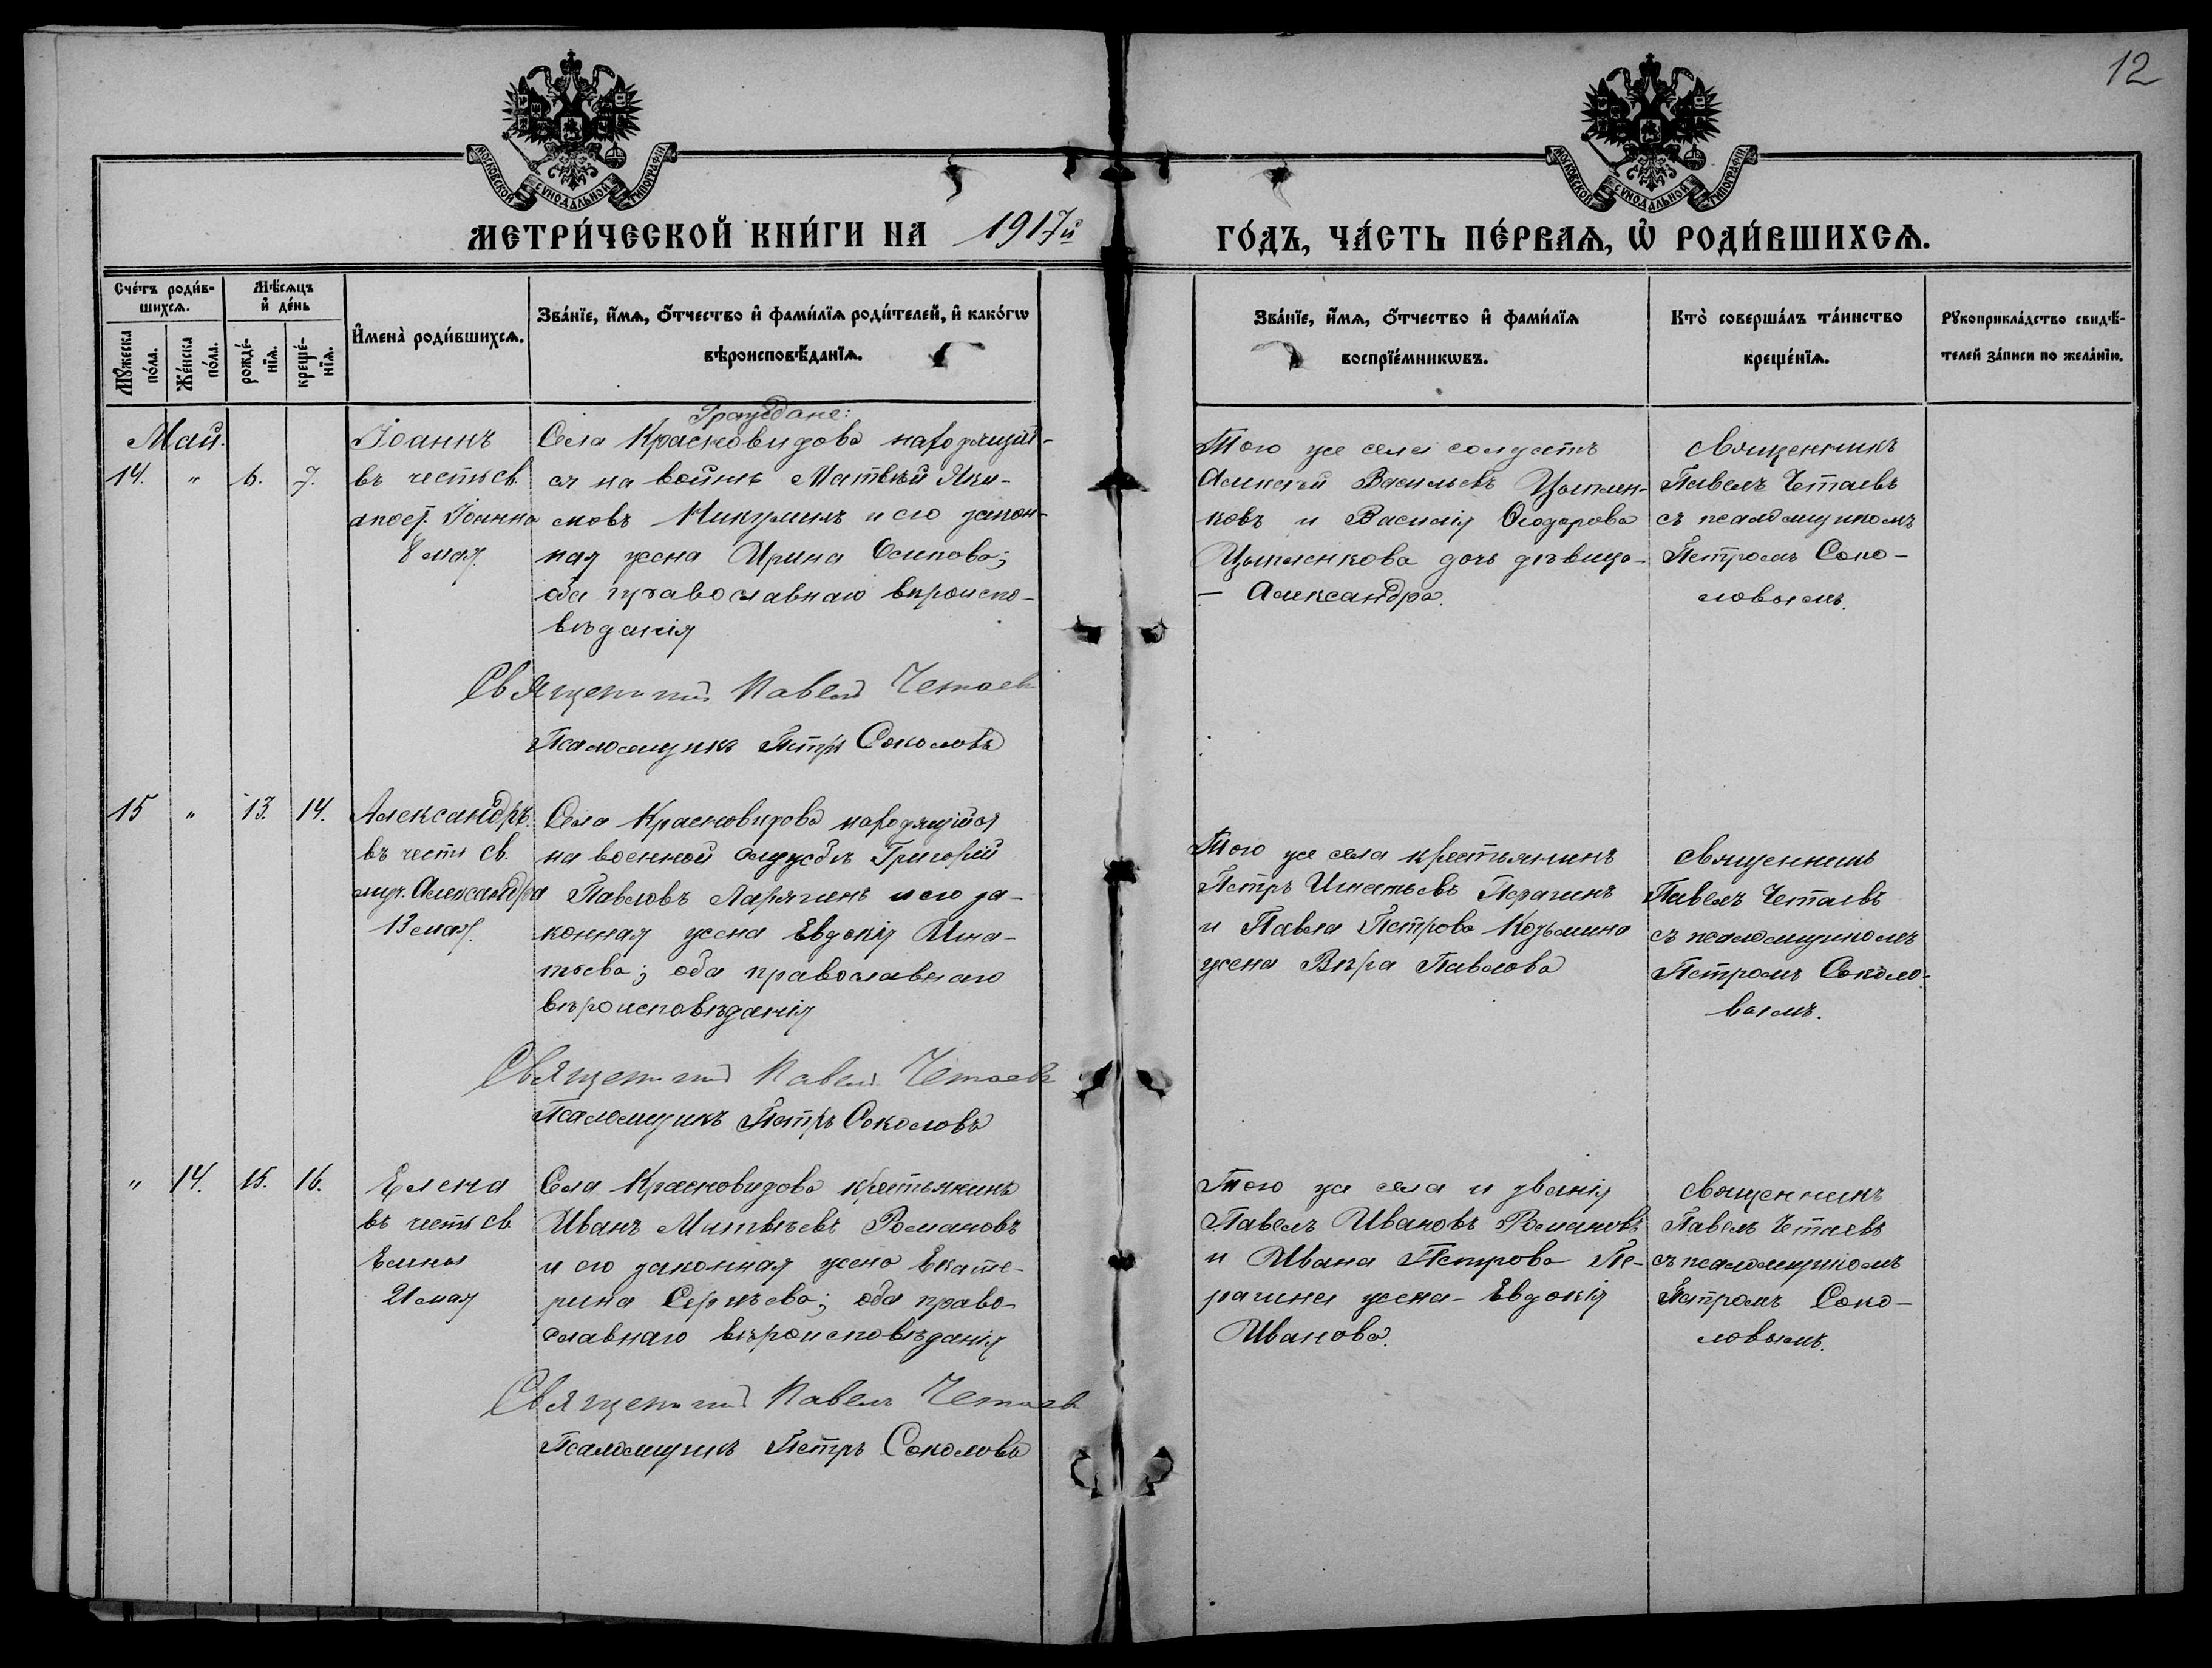 12
МОСКОВСКОЙ СѴНОДАЛЬНОЙ ТИПОГРАФІИ
МОСКОВСКОЙ СѴНОДАЛЬНОЙ ТИПОГРАФІИ
МЕТРИ́ЧЕСКОЙ КНИ́ГИ НА 1917й
ГО́ДЪ, ЧА́СТЬ ПЕ́РВАѦ, Ѽ РОДИ́ВШИХСѦ.
Сче́тъ роди́в-
шихсѧ.
Мꙋ́жеска
по́ла.
Же́нска
по́ла.
Мѣ́сѧцъ
и҆ де́нь
рожде́-
нїѧ.
креще́-
нїѧ.
И҆мена̀ роди́вшихсѧ.
Зва́нїе, и҆́мѧ, ѻ҆́тчество и҆ фами́лїѧ роди́телей, и҆ како́гѡ
вѣроисповѣ́данїѧ.
Зва́нїе, и҆́мѧ, ѻ҆́тчество и҆ фами́лїѧ
воспрїе́мникѡвъ.
Кто̀ соверша́лъ та́инство
креще́нїѧ.
Рꙋкоприкла́дство свидѣ́-
телей за́писи по жела́нїю.
Май.
14.
"
6.
7.
Іоаннъ
въ честь св.
апост. Іоанна
8 мая.
Граждане:
Села Красновидова находящій-
ся на войнѣ Матвѣй Яки-
мовъ Никулинъ и его закон-
ная жена Ирина Осипова;
оба православнаго вѣроиспо-
вѣданія
Священникъ Павелъ Четаевъ
Псаломщикъ Петръ Соколовъ
Того же села солдатъ
Алексѣй Васильевъ Цыплен-
ковъ и Василія Ѳеодорова
Цыпленкова дочь дѣвица-
- Александра.
Священникъ
Павелъ Четаевъ
съ псаломщикомъ
Петромъ Соко-
ловымъ.
15
"
13.
14.
Александръ.
въ честь св.
муч. Александра
13 мая.
Села Красновидова находящійся
на военной службѣ Григорій
Павловъ Ларягинъ и его за-
конная жена Евдокія Игна-
тьева; оба православнаго
вѣроисповѣданія
Священникъ Павелъ Четаевъ
Псаломщикъ Петръ Соколовъ
Того же села крестьянинъ
Петръ Игнатьевъ Перагинъ
и Павла Петрова Козьмина
жена Вѣра Павлова
Священникъ
Павелъ Четаевъ
съ псаломщикомъ
Петромъ Соколо-
вымъ.
"
14.
15.
16.
Елена
въ честь св.
Елены
21 мая
Села Красновидова крестьянинъ
Иванъ Матвѣевъ Романовъ
и его законная жена Екате-
рина Сергѣева; оба право-
славнаго вѣроисповѣданія
Священникъ Павелъ Четаевъ
Псаломщикъ Петръ Соколовъ
Того же села и званія
Павелъ Ивановъ Романовъ
и Ивана Петрова Пе-
рагина жена- Евдокія
Иванова.
Священникъ
Павелъ Четаевъ
съ псаломщикомъ
Петромъ Соко-
ловымъ.